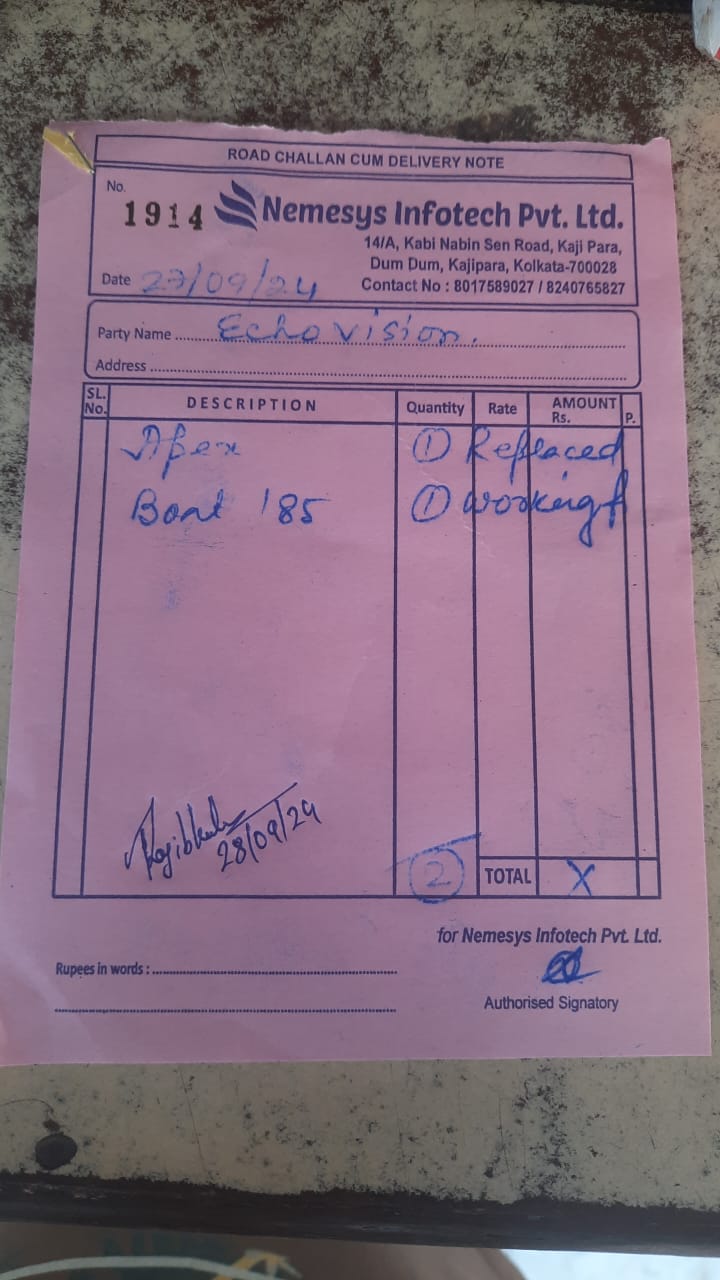 ROAD CHALLAN CUM DELIVERY NOTE
No.
1914
Nemesys Infotech Pvt. Ltd.
14/A, Kabi Nabin Sen Road, Kaji Para,
Dum Dum, Kajipara, Kolkata-700028
Date 27/09/24 Contact No : 8017589027 / 8240765827
Party Name Echo vision.
Address
SL. No. DESCRIPTION Quantity Rate AMOUNT Rs. P.
Apex 1 Replaced
Boat 185 1 working
28/09/24
2 TOTAL X
for Nemesys Infotech Pvt. Ltd.
Rupees in words :
Authorised Signatory